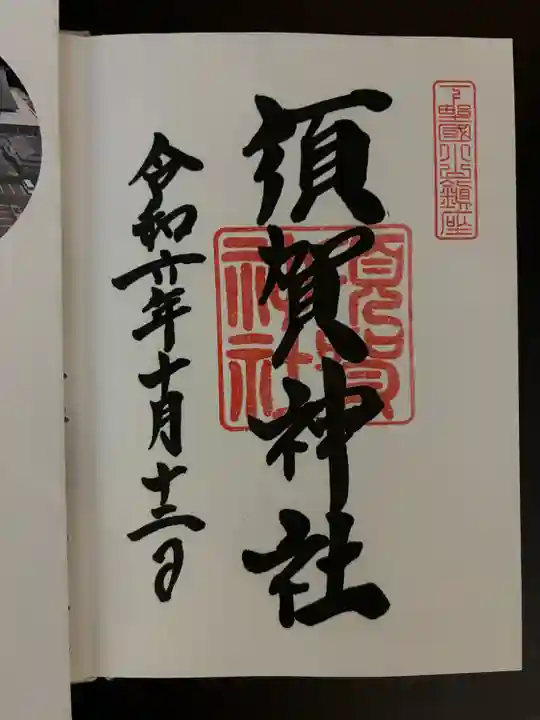 下野國小山鎮座
須賀神社
須賀神社
令和六年十月十三日